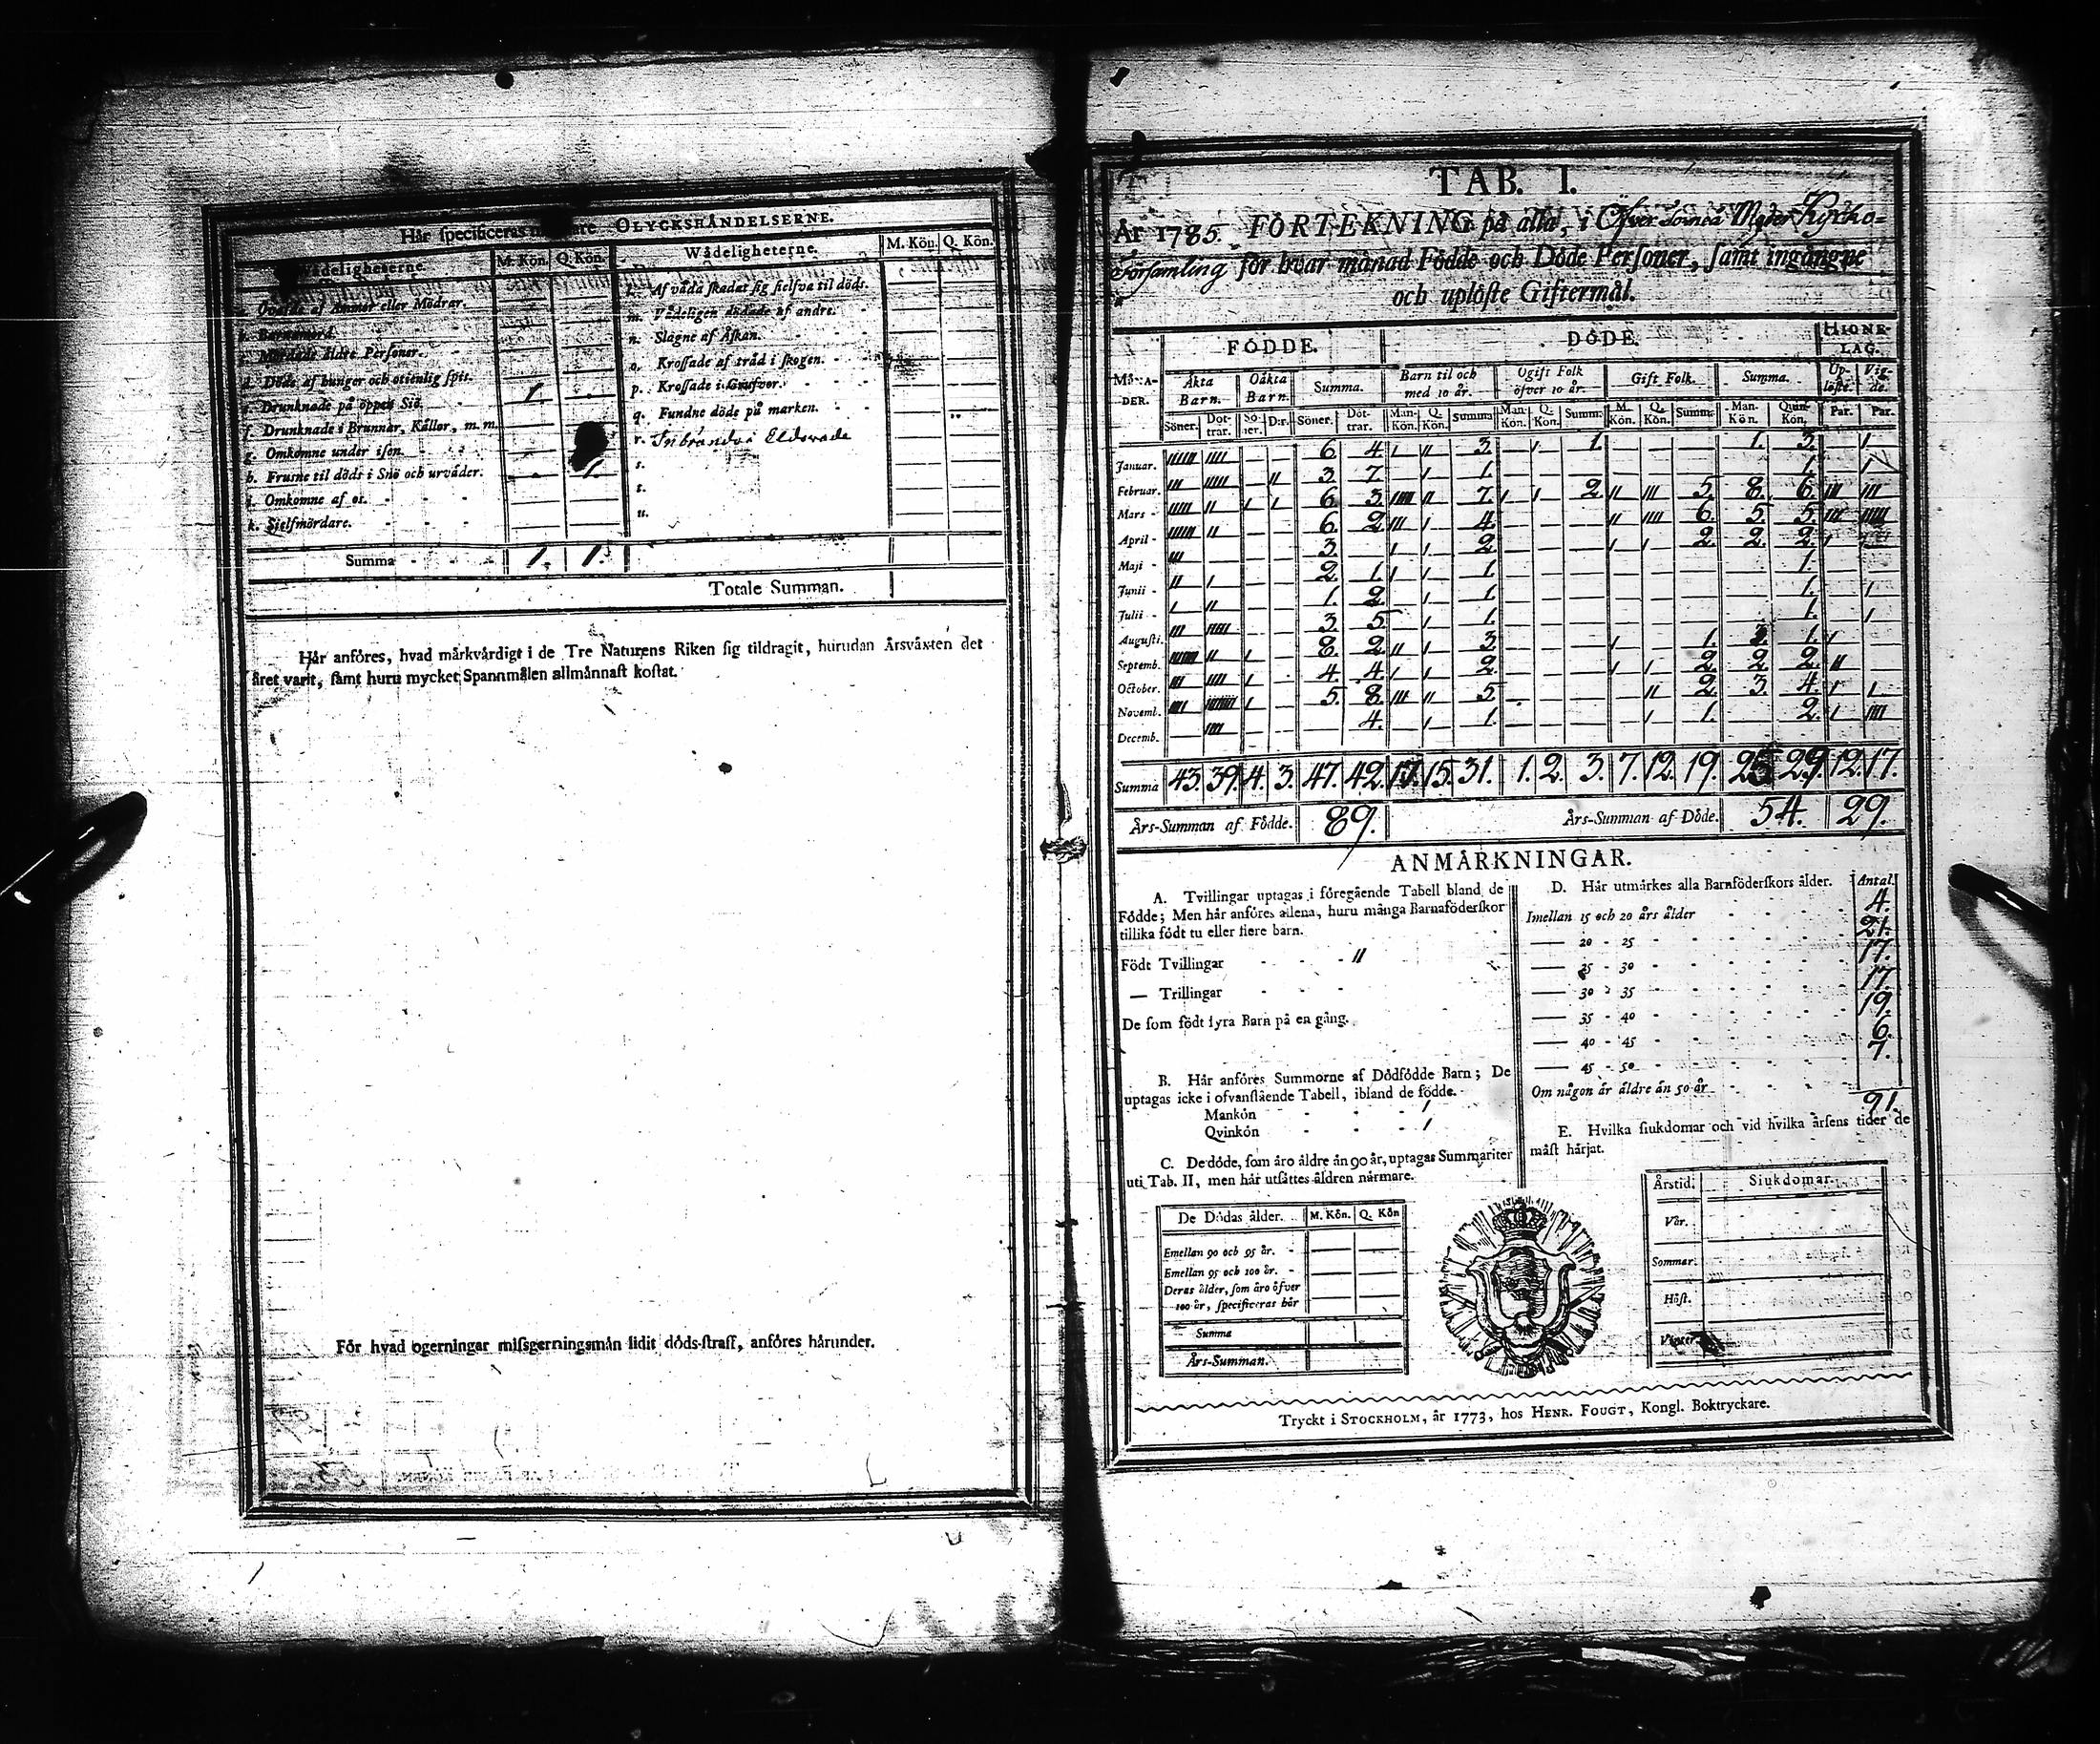 Här specificeras OLYCKSHÅNDELSERNE.
Wådeligheterne. M. Kön. Q. Kön. Wådeligheterne. M. Kön. Q. Kön.
Qvafde af Ammor eller Mödrar.
b. Barnemord.
Mördade äldre Personer.
d. Döde af hunger och otienlig spis.
e. Drunknade på öppen Siö. 1.
f. Drunknade i Brunnar, Källor, m. m.
g. Omkomne under isen.
h. Frusne til döds i Snö och urväder. 1.
i. Omkomne af os.
k. Sielfmördare.
Summa 1. 1.
l. Af våda skadat sig sielfva til döds.
m. Vådeligen dödade af andre.
n. Slagne af Åskan.
o. Krossade af träd i skogen.
p. Krossade i Grufvor.
q. Fundne döde på marken.
r. Inbrände i Eldsvåde
s.
t.
u.
Totale Summan.
Här anföres, hvad märkvärdigt i de Tre Naturens Riken sig tildragit, hurudan Årsväxten det
året varit, samt huru mycket Spannmålen allmännast kostat.
För hvad ogerningar missgerningsmän lidit döds-straff, anföres härunder.
TAB. I.
År 1785. FÖRTEKNING på alla, i Öfver Torneå Moder Kyrko-
Församling för hvar månad Födde och Döde Personer, samt ingångne
och uplöste Giftermål.
FÖDDE. DÖDE. HIONE-LAG.
MÅNA-DER. Äkta Barn. Oäkta Barn. Summa. Barn til och med 10 år. Ogift Folk öfver 10 år. Gift Folk. Summa. Up-löste. Vig-de.
Söner. Döt-trar. Sö-ner. D:r. Söner. Döt-trar. Man-Kön. Q. Kön. Summa Man-Kön. Q. Kön. Summ: M. Kön. Q. Kön. Summ: Man-Kön. Quin-Kön. Par. Par.
Januar. 6. 4. 3. 1. 1. 3.
Februar. 3. 7. 1. 1.
Mars 6. 3. 7. 2. 5. 8. 6.
April 6. 2. 4. 6. 5. 5.
Maji 3. 2. 2. 2. 2.
Junii 2. 1. 1. 1.
Julii 1. 2. 1. 1.
Augusti. 3. 5. 1. 1.
Septemb. 8. 2. 3. 1. 1.
October. 4. 4. 2. 2. 2. 2.
Novemb. 5. 8. 5. 2. 3. 4.
Decemb. 4. 1. 1. 2.
Summa 43. 39. 4. 3. 47. 42. 15. 31. 1. 2. 3. 7. 12. 19. 25 29. 12. 17.
Års-Summan af Födde. 89. Års-Summan af Döde. 54. 29.
ANMÄRKNINGAR.
A. Tvillingar uptagas i föregående Tabell bland de
Födde; Men här anföres allena, huru många Barnaföderskor
tillika födt tu eller flere barn.
Födt Tvillingar 11
— Trillingar
De som födt fyra Barn på en gång.
B. Här anföres Summorne af Dödfödde Barn; De
uptagas icke i ofvanstående Tabell, ibland de födde.
Mankön 1
Qvinkön 1
C. De döde, som äro äldre än 90 år, uptagas Summariter
uti Tab. II, men här utsättes åldren närmare.
De Dödas ålder. M. Kön. Q. Kön
Emellan 90 och 95 år.
Emellan 95 och 100 år.
Deras ålder, som äro öfver
100 år, specificeras här
Summa
Års-Summan.
D. Här utmärkes alla Barnföderskors ålder. Antal.
Imellan 15 och 20 års ålder 4.
20 - 25 21.
25 - 30 17.
30 - 35 17.
35 - 40 19.
40 - 45 6.
45 - 50 7.
Om någon är äldre än 50 år
91.
E. Hvilka siukdomar och vid hvilka årsens tider de
mäst härjat.
Årstid. Siukdomar.
Vår.
Sommar.
Höst.
Vinter.
Tryckt i STOCKHOLM, år 1773, hos HENR. FOUGT, Kongl. Boktryckare.